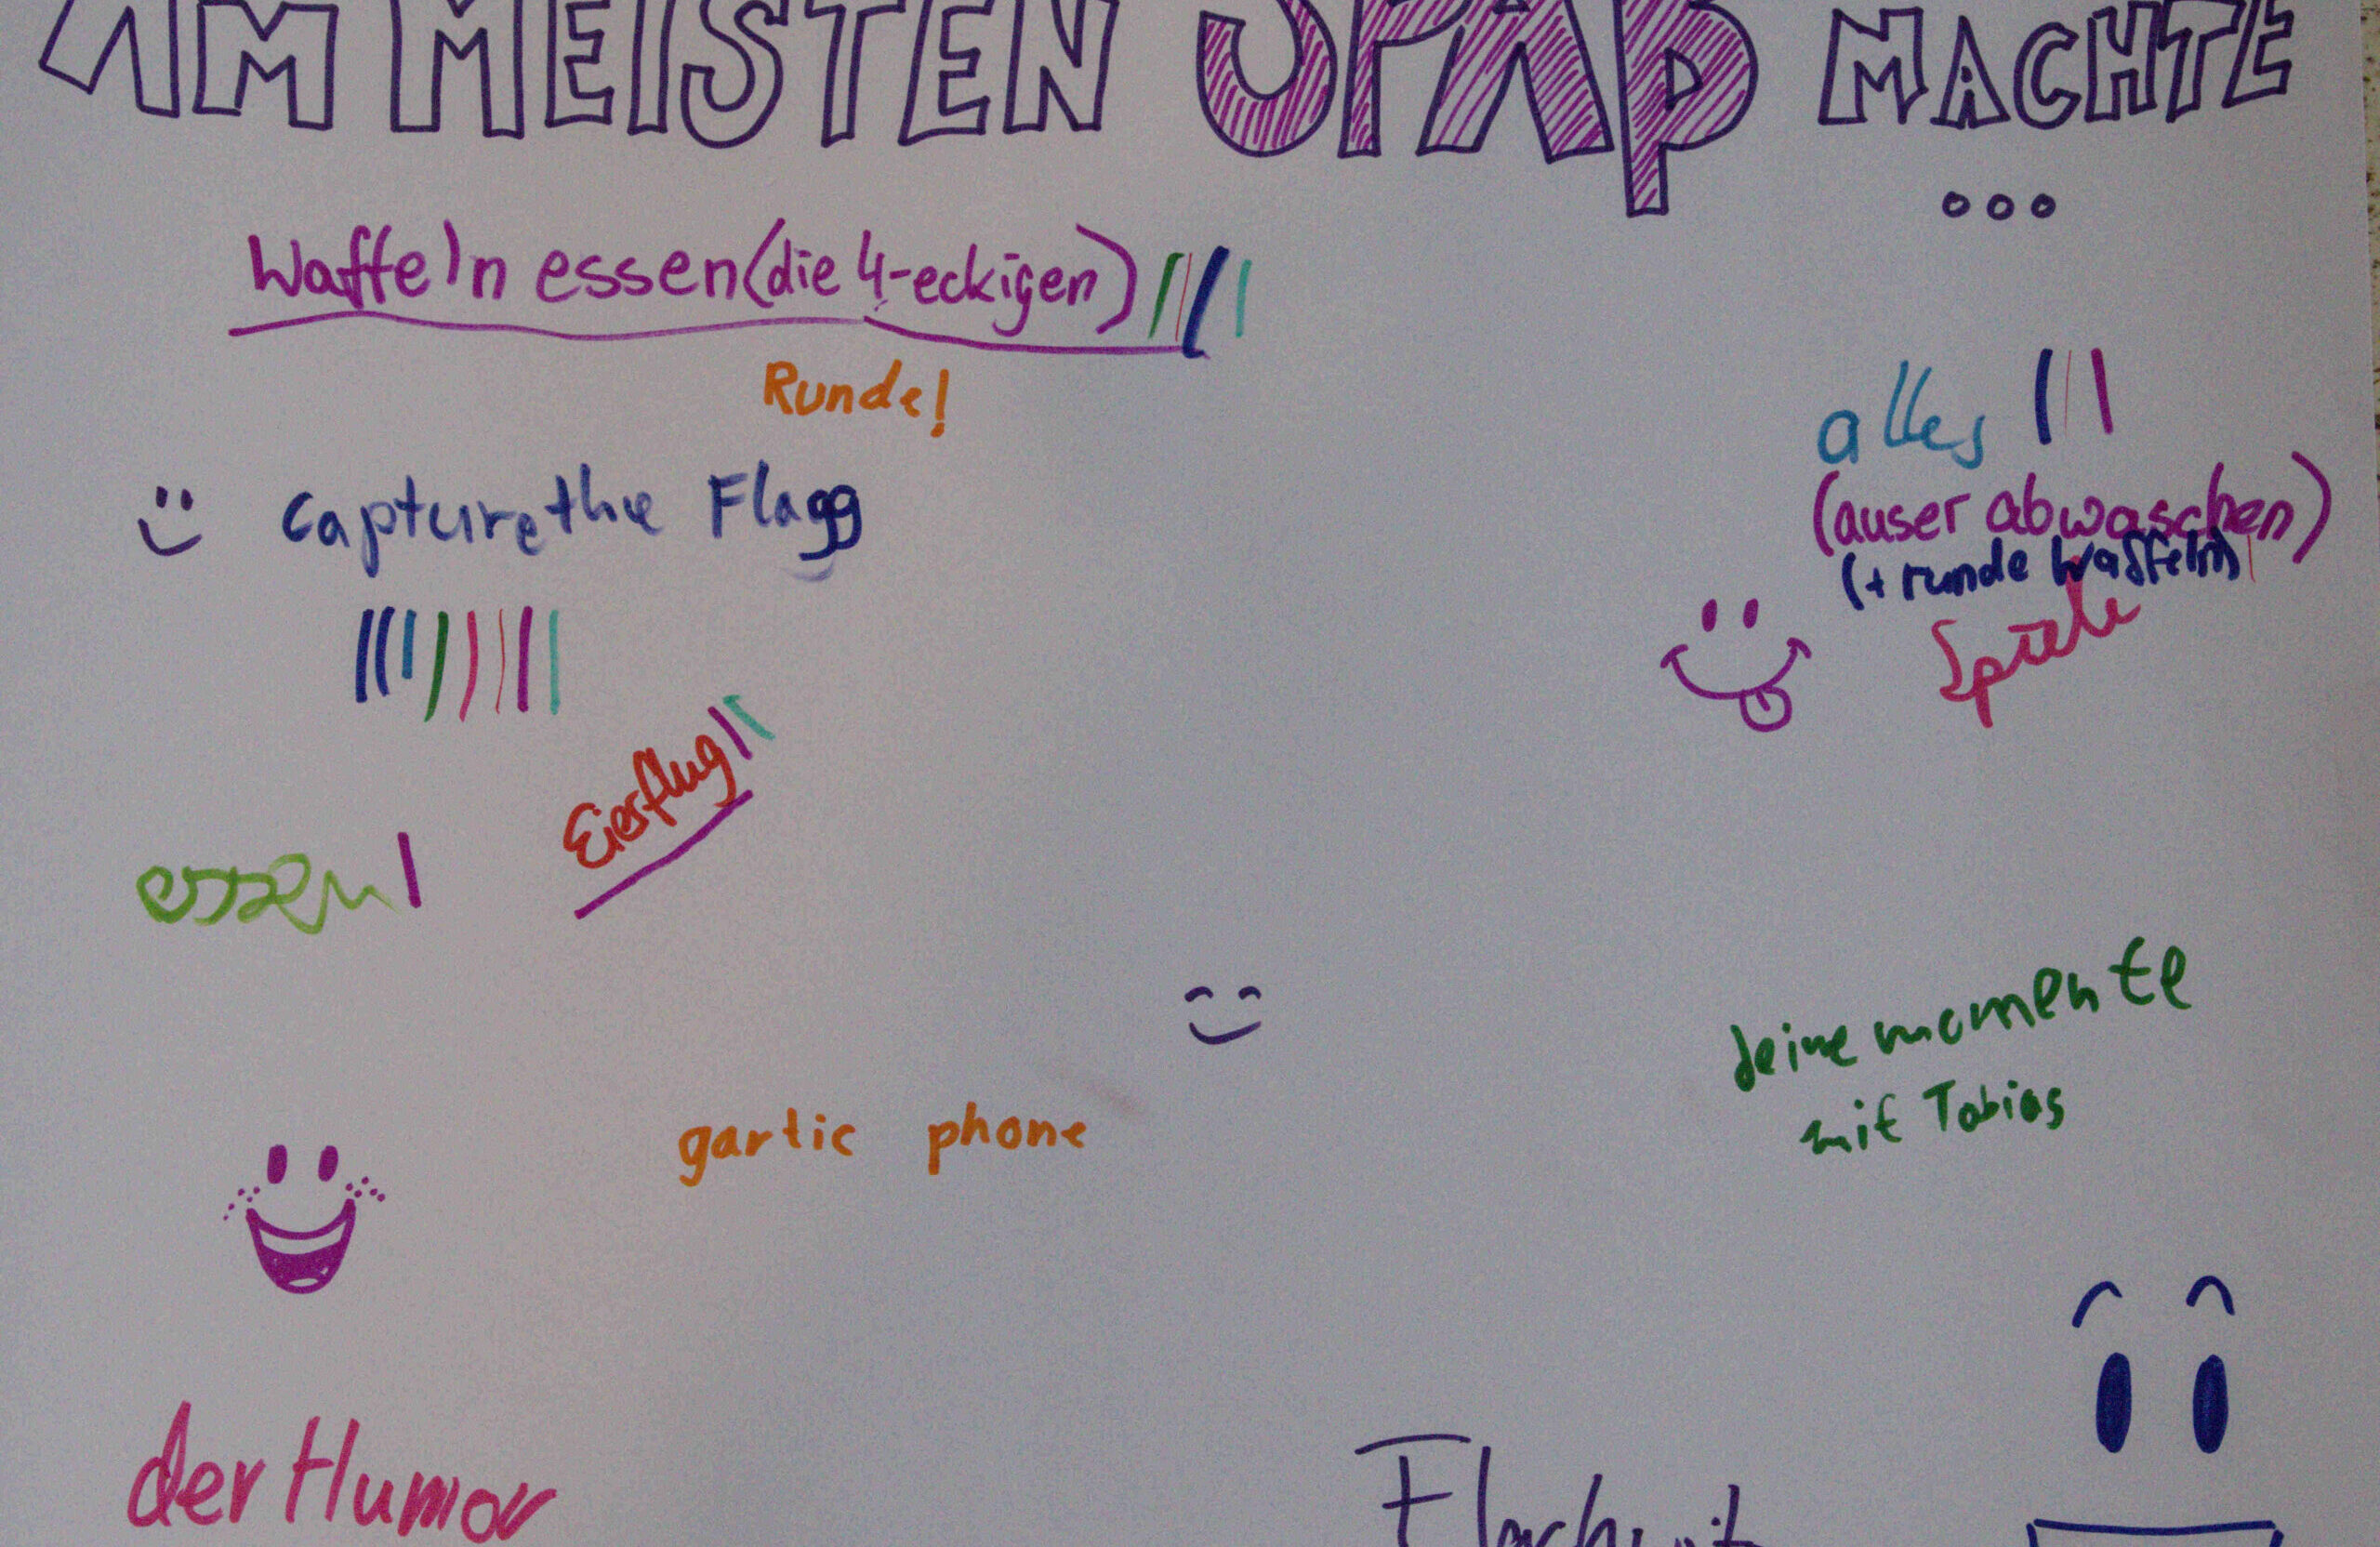 AM MEISTEN SPAß MACHTE
...
Waffeln essen (die 4-eckigen)
Runde!
alles
(auser abwaschen)
(+ runde Waffeln)
Spiele
Capture the Flagg
Eierflug
essen
deine momente
mit Tobias
gartic phone
der Humor